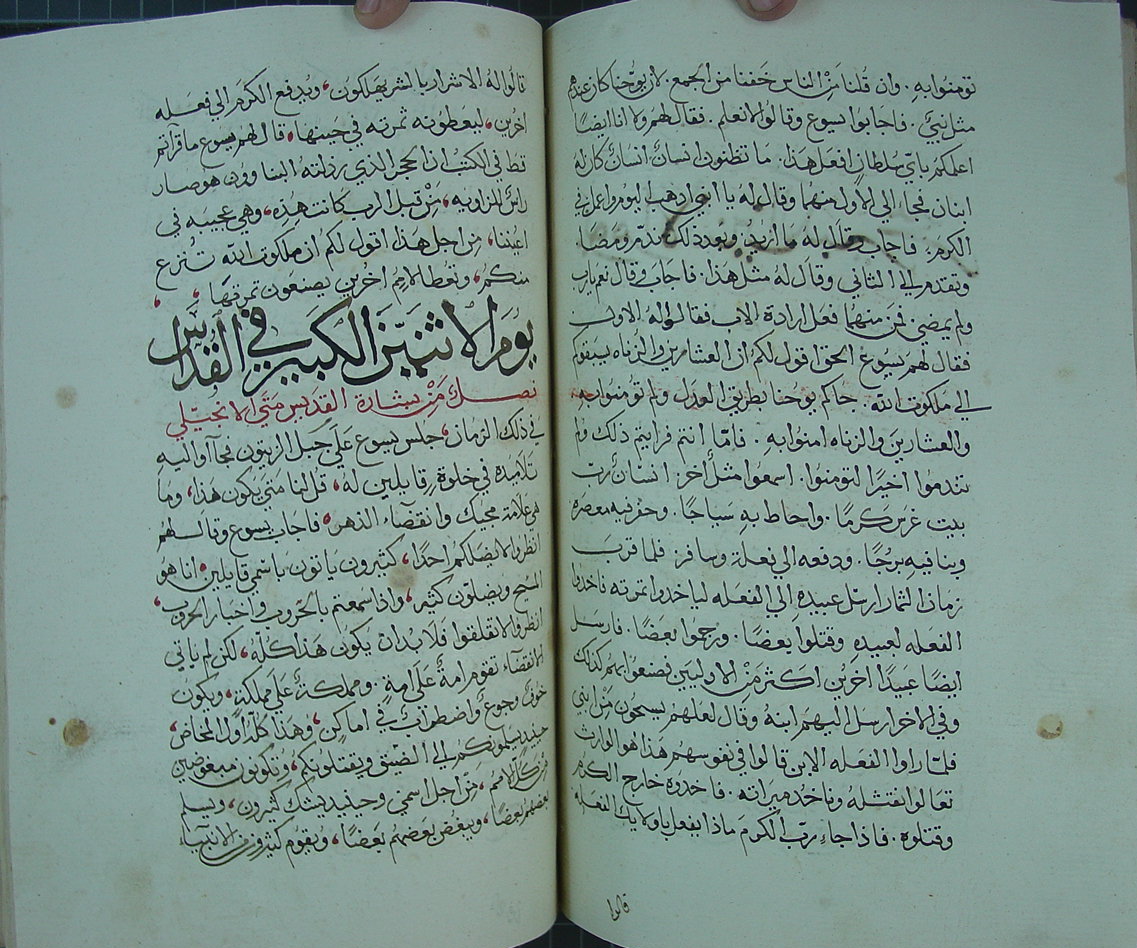 تومنوا به . وان قُلنا مِنْ الناس خَفنا من الجمع . لان يوحنا كان عندهم
مثل نبيّ . فاجابوا يسوع وقالوا لا نعلم . فقال لهم ولا انا ايضاً
اعلمكم باي سُلطان افعل هذا . ما تظنون انسان كان له
ابنان فجاء الي الاول منهما وقال له يا ابني اذهب اليوم واعمل في
الكرم . فاجاب وقال له ما اريد . وبعد ذلك ندم ومضا .
وتقدم الي الثاني وقال له مثل هذا . فاجاب وقال نعم يارب
ولم يمضي . فمن منهما فعل ارادة الاب فقالوا له الاول
فقال لهم يسوع الحق اقول لكم ان العشارين والزناه يسبقوكم
الي ملكوت الله . جاكم يوحنا بطريق العدل ولم تومنوا به
والعشارين والزناه امنوا به . فامّا انتم فرايتم ذلك ولم
تندموا اخيرًا لتومنوا . اسمعوا مثل اخر . انسان رب
بيت غرس كرمًا . واحاط به سياجًا . وحفر فيه معصره
وبنا فيه برجًا . ودفعه الي فعلة وسافر . فلما قرب
زمان الثمار ارسل عبيده الي الفعله لياخدوا ثمرته فاخدوا
الفعله لعبيده وقتلوا بعضًا . ورجموا بعضًا . فارسل
ايضًا عبيدًا آخرين اكثر مْن الاوليين فصنعوا بهم كذلك
وفي الاخر ارسل اليهم ابنه وقال لعلهم يستحون من ابني
فلمّا راوا الفعله الابن قالوا في نفوسهم هذا هو الوارث
تعالوا نقتله وناخد ميراته . فاخدوه خارج الكرم
وقتلوه . فاذا جاء ربّ الكرم ماذا يفعل باولايك الفعله
قالوا
قالوا له الاشرار بالشر يهلكون، ويُدفع الكرم الي فعله
اخرين، ليعطونه ثمرته في حينها، قال لهم يسوع ما قراتم
قط في الكتب ان الحجر الذي رذلته البنا وون هو صار
راس الزاويه، مِنْ قبل الرب كانت هذه، وهي عجيبه في
اعيننا، من اجل هذا اقول لكم ان ملكوت الله تُنزع
منكم، وتعطا لامم اخرين يصنعون ثمرتها،
يوم الاثنين الكبير في القداس
فصل مِنْ بشارة القديس متي الانجيلي
في ذلك الزمان، جلس يسوع علي جبل الزيتون فجآ وا اليه
تلاميده في خلوة قايلين له، قل لنا متي يكون هذا، وما
هي علامة مجيك وانقضاء الدهر، فاجاب يسوع وقال لهم
انظروا لا يضلكم احدًا، كثيرون ياتون باسمي قايلين، انا هو
المسيح ويضلون كثير، واذا سمعتم بالحروب واخبار الحروب،
انظروا لا تقلقوا فلا بد ان يكون هذا كله، لكن لم ياتي
الانقضاء تقوم امة علي امةٍ، ومملكة علي مملكة، ويكون
خوف وجوع واضطراب في اماكن، وهذا كله اول المخاض،
حينيد يسلمونكم الي الضيق ويقتلونكم، وتكونون مبغوضين
من كل الامم، مِن اجل اسمي وحينيد يشك كثيرون، ويسلم
بعضهم بعضًا، ويبغض بعضهم بعضًا، ويقوم كثيرون من الانبياء